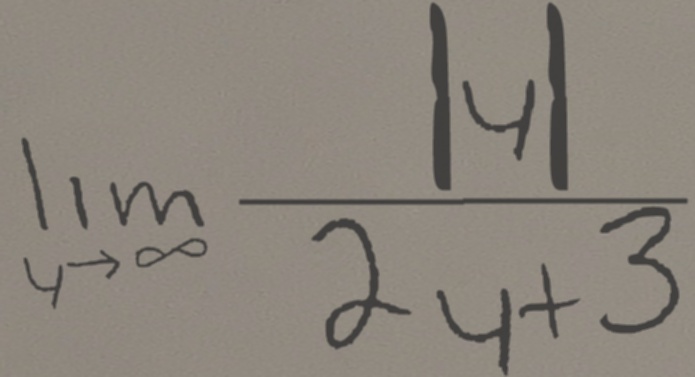 lim y→∞ |y| / 2y+3